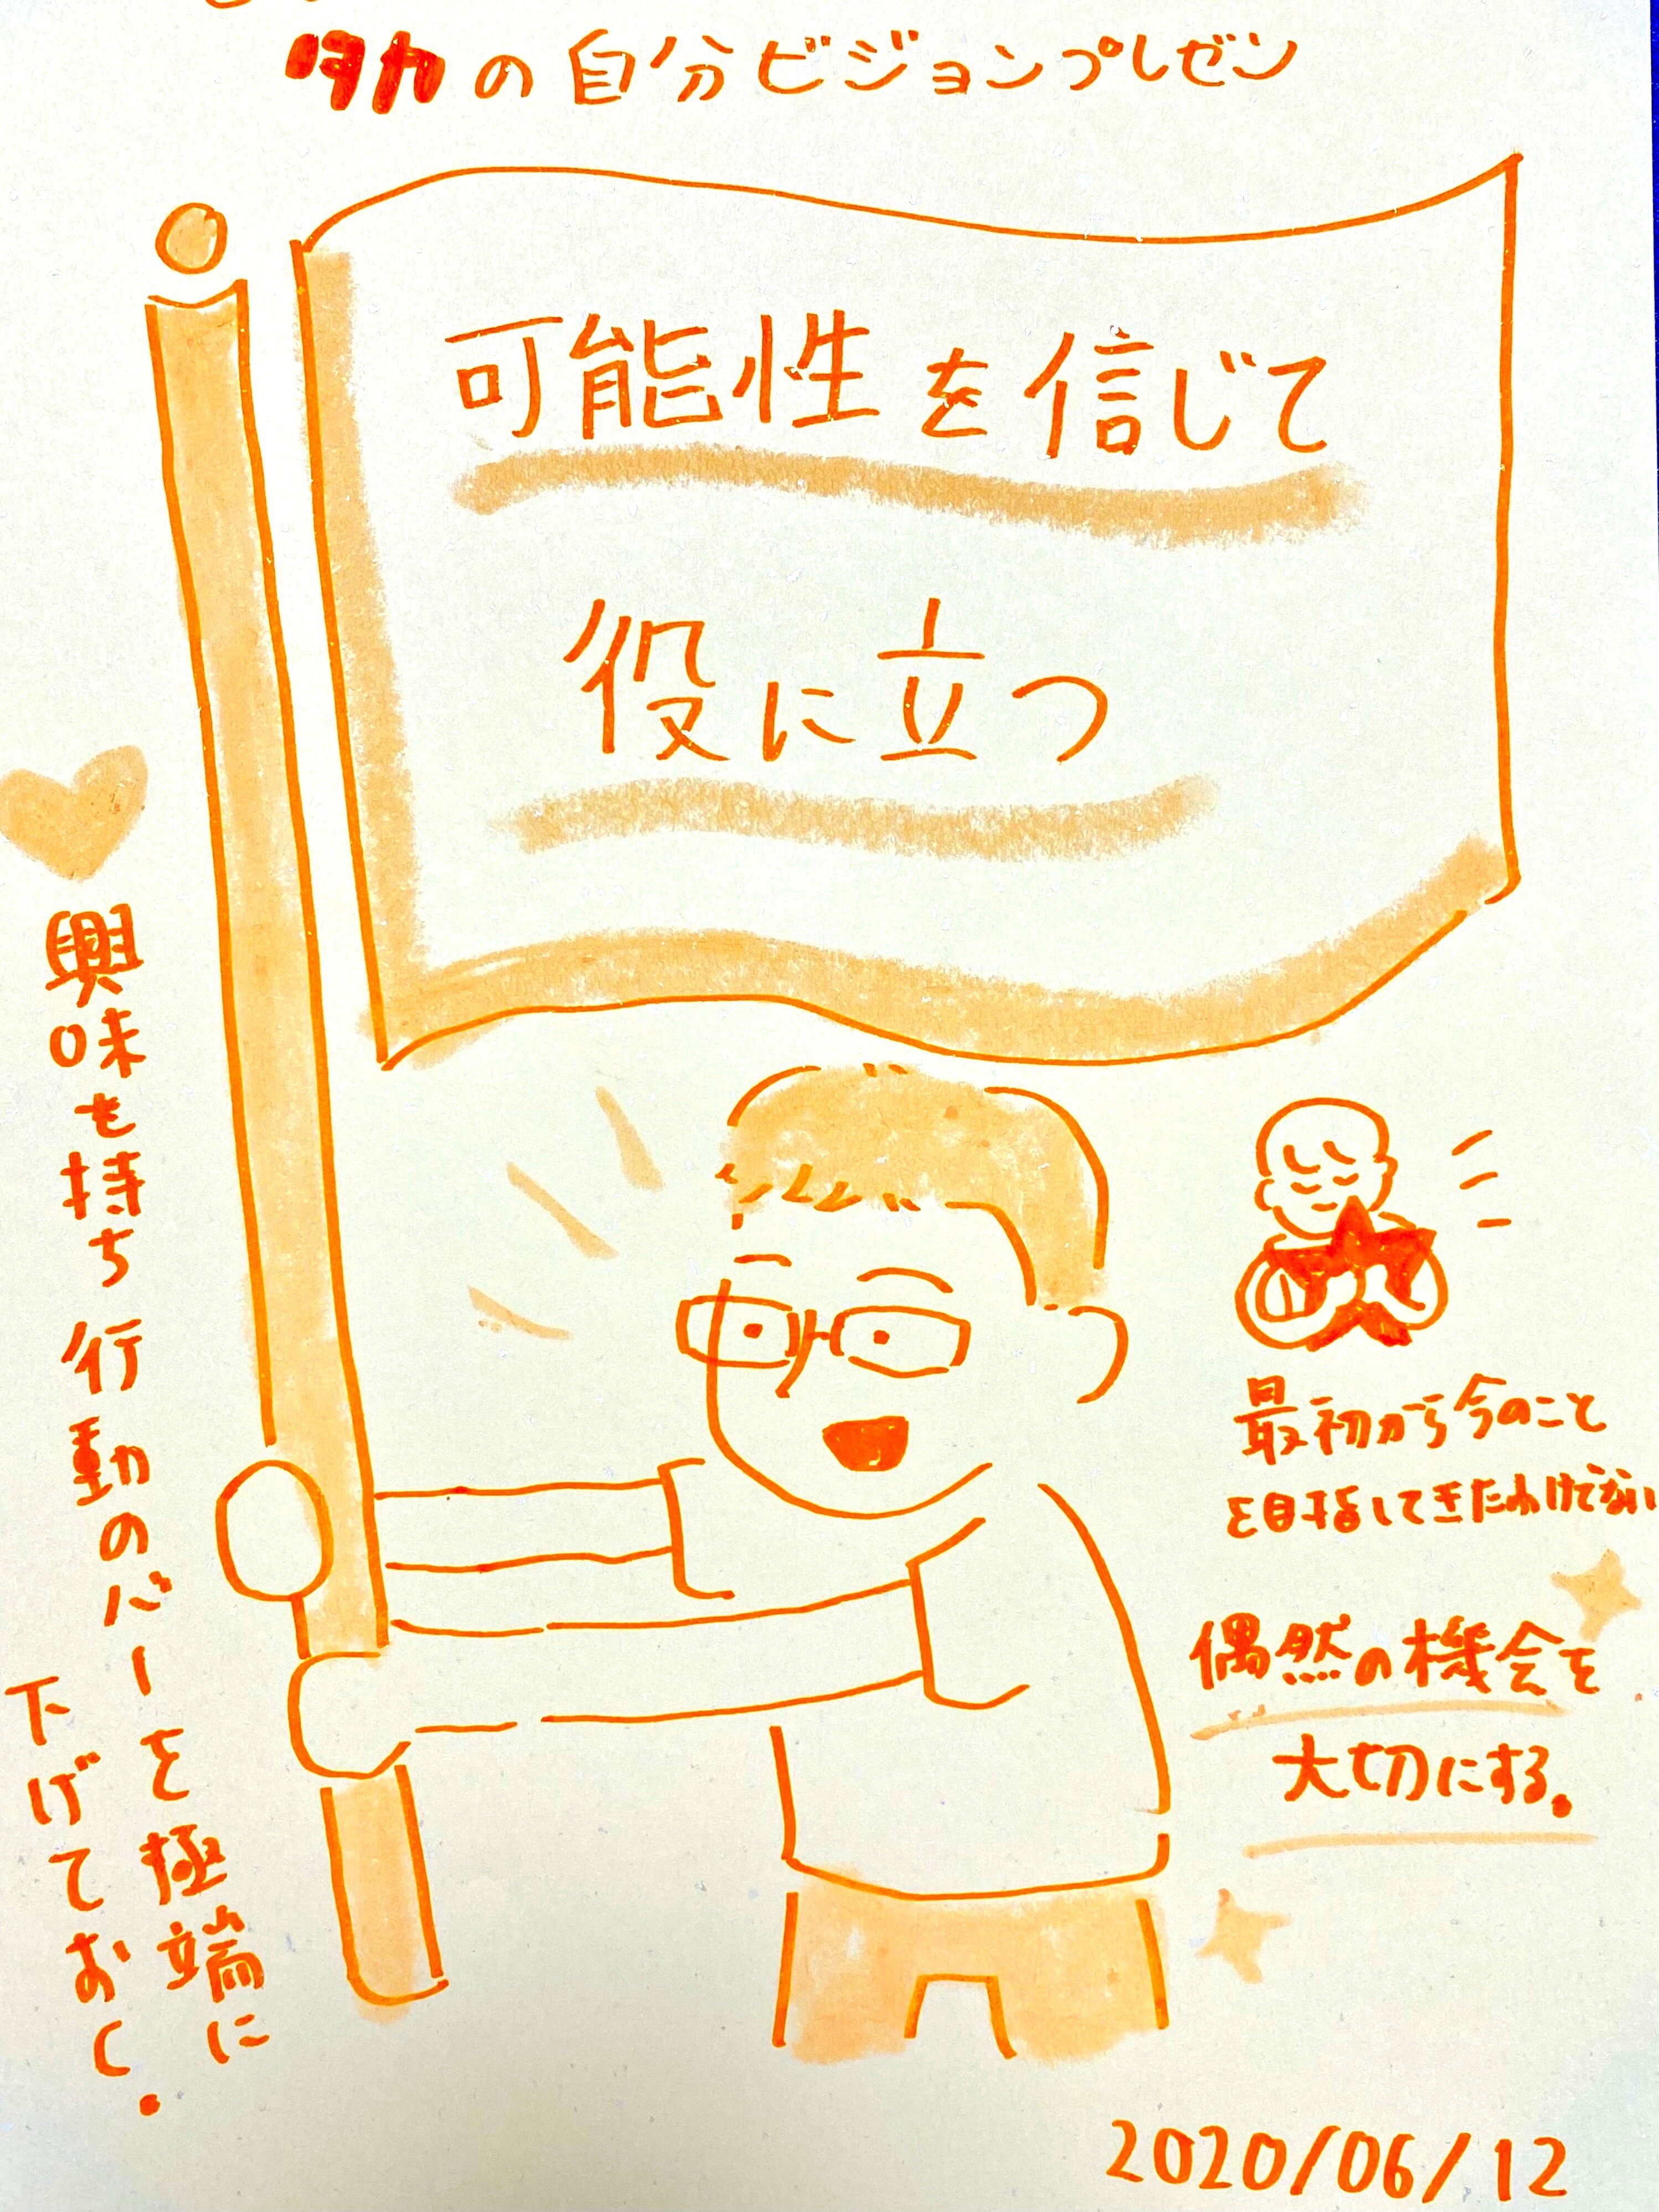 タカの自分ビジョンプレゼン
可能性を信じて
役に立つ
興味を持ち行動のバーを極端に
下げておく.
最初から今のこと
を目指してきたわけでない
偶然の機会を
大切にする.
2020/06/12